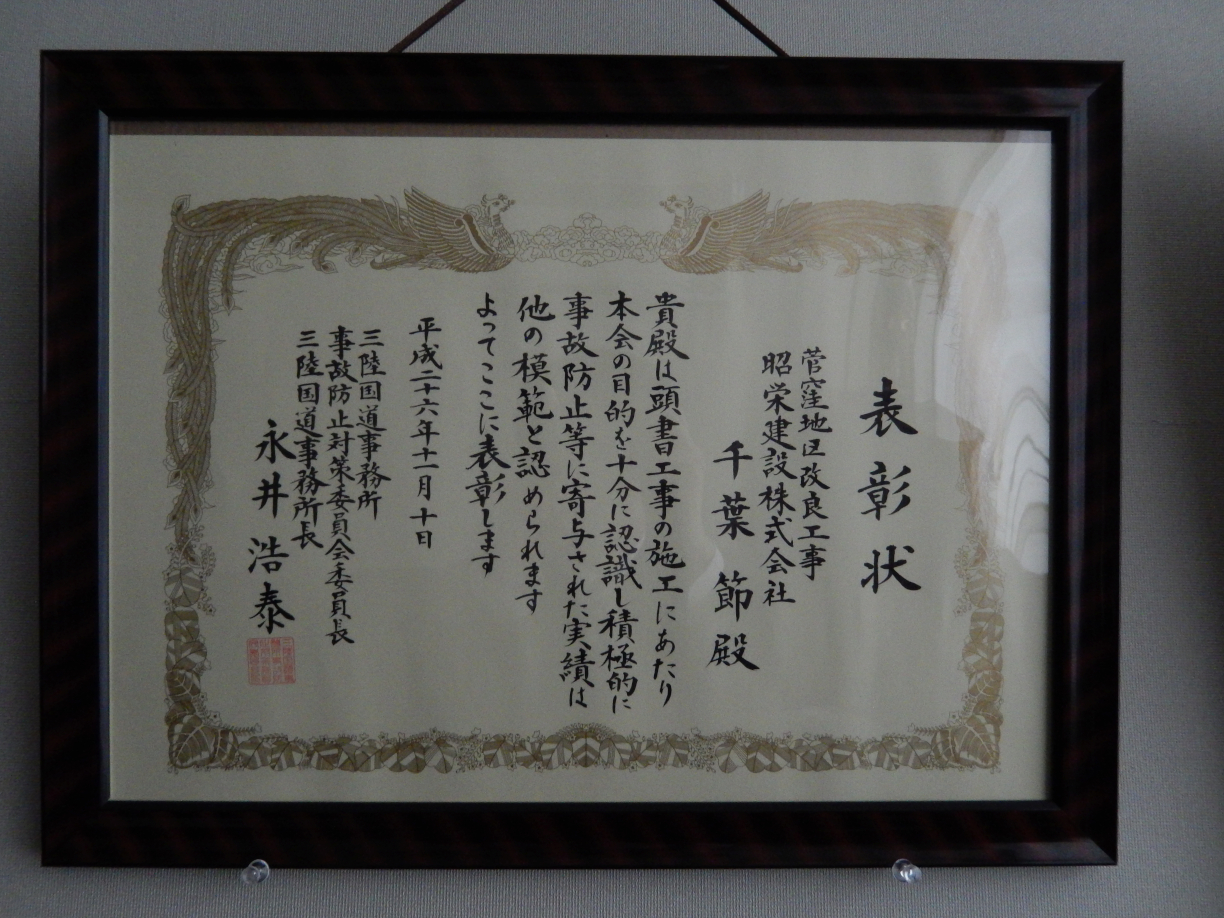 表彰状
菅窪地区改良工事
昭栄建設株式会社
千葉節殿
貴殿は頭書工事の施工にあたり
本会の目的を十分に認識し積極的に
事故防止等に寄与された実績は
他の模範と認められます
よってここに表彰します
平成二十六年十一月十日
三陸国道事務所
事故防止対策委員会委員長
三陸国道事務所長
永井浩泰